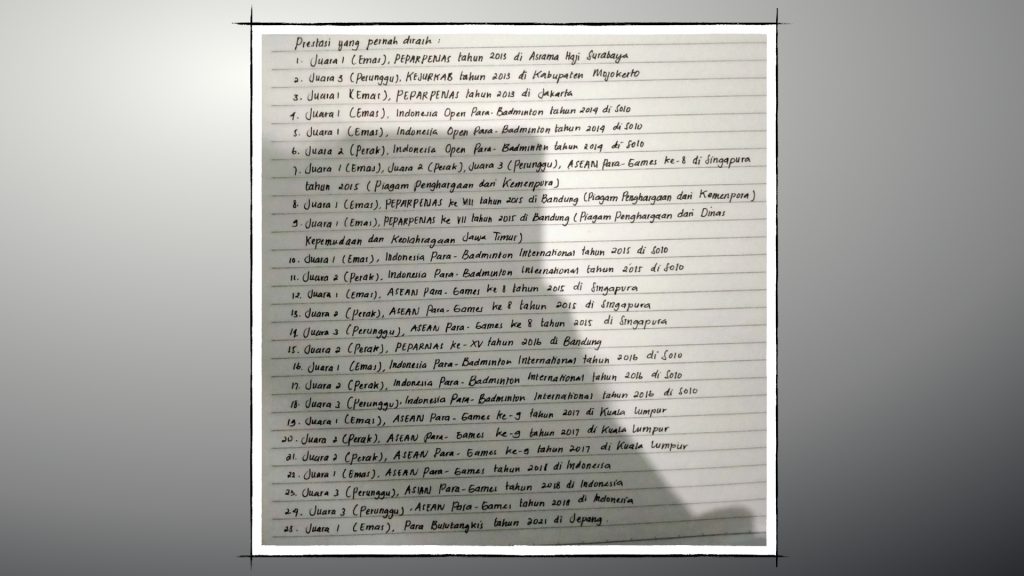 Prestasi yang pernah diraih :
1. Juara 1 (Emas), PEPARPENAS tahun 2013 di Asrama Haji Surabaya
2. Juara 3 (Perunggu), KEJURKAB tahun 2013 di Kabupaten Mojokerto
3. Juara 1 (Emas), PEPARPENAS tahun 2013 di Jakarta
4. Juara 1 (Emas), Indonesia Open Para-Badminton tahun 2014 di Solo
5. Juara 1 (Emas), Indonesia Open Para-Badminton tahun 2014 di Solo
6. Juara 2 (Perak), Indonesia Open Para-Badminton tahun 2014 di Solo
7. Juara 1 (Emas), Juara 2 (Perak), Juara 3 (Perunggu), ASEAN Para-Games ke-8 di Singapura
tahun 2015 (Piagam Penghargaan dari Kemenpora)
8. Juara 1 (Emas), PEPARPENAS ke VII tahun 2015 di Bandung (Piagam Penghargaan dari Kemenpora)
9. Juara 1 (Emas), PEPARPENAS ke VII tahun 2015 di Bandung (Piagam Penghargaan dari Dinas
Kepemudaan dan Keolahragaan Jawa Timur)
10. Juara 1 (Emas), Indonesia Para-Badminton International tahun 2015 di Solo
11. Juara 2 (Perak), Indonesia Para-Badminton International tahun 2015 di Solo
12. Juara 1 (Emas), ASEAN Para-Games ke 8 tahun 2015 di Singapura
13. Juara 2 (Perak), ASEAN Para-Games ke 8 tahun 2015 di Singapura
14. Juara 3 (Perunggu), ASEAN Para-Games ke 8 tahun 2015 di Singapura
15. Juara 2 (Perak), PEPARNAS ke-XV tahun 2016 di Bandung
16. Juara 1 (Emas), Indonesia Para-Badminton International tahun 2016 di Solo
17. Juara 2 (Perak), Indonesia Para-Badminton International tahun 2016 di Solo
18. Juara 3 (Perunggu), Indonesia Para-Badminton International tahun 2016 di Solo
19. Juara 1 (Emas), ASEAN Para-Games ke-9 tahun 2017 di Kuala Lumpur
20. Juara 2 (Perak), ASEAN Para-Games ke-9 tahun 2017 di Kuala Lumpur
21. Juara 2 (Perak), ASEAN Para-Games ke-9 tahun 2017 di Kuala Lumpur
22. Juara 1 (Emas), ASEAN Para-Games tahun 2018 di Indonesia
23. Juara 3 (Perunggu), ASIAN Para-Games tahun 2018 di Indonesia
24. Juara 3 (Perunggu), ASEAN Para-Games tahun 2018 di Indonesia
25. Juara 1 (Emas), Para Bulutangkis tahun 2021 di Jepang.